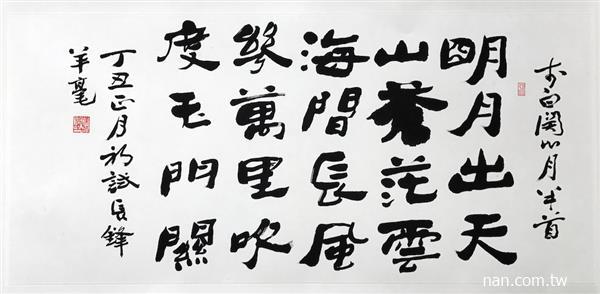 李白関山月半首
明月出天
山蒼茫雲
海間長風
幾萬里吹
度玉門關
丁丑正月初試長鋒
羊毫
nan.com.tw